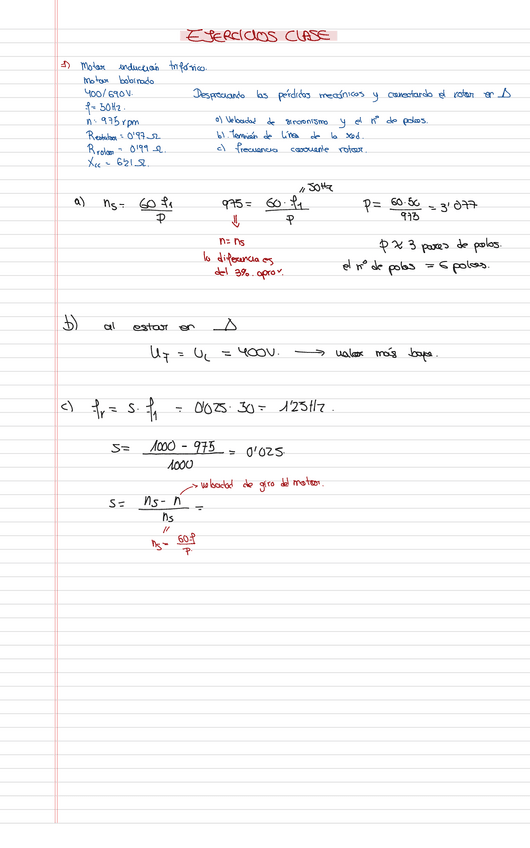 EJERCICIOS CLASE
1) Motor inducción trifásico.
Motor bobinado
400/690V.
f= 50Hz.
n= 975rpm
Restator = 0'97 Ω
Rrotor = 0'99 Ω.
Xcc = 6'21 Ω.
Despreciando las pérdidas mecánicas y conectando el rotor en Δ
a) Velocidad de sincronismo y el nº de polos.
b) Tensión de línea de la red.
c) frecuencia corriente rotor.
a) ns = 60 f1 / P
975 = 60· f1 / P
// 50Hz
P = 60·50 / 975 = 3'077
⇓
n = ns
la diferencia es
del 3%. aprox.
P ≈ 3 pares de polos.
el nº de polos = 6 polos.
b) al estar en Δ
UF = UL = 400V. → valor más bajo.
c) fr = s· f1 = 0'025· 50 = 1'25Hz.
S = 1000 - 975 / 1000 = 0'025
→ velocidad de giro del motor.
S = ns - n / ns =
//
ns = 60f / P.